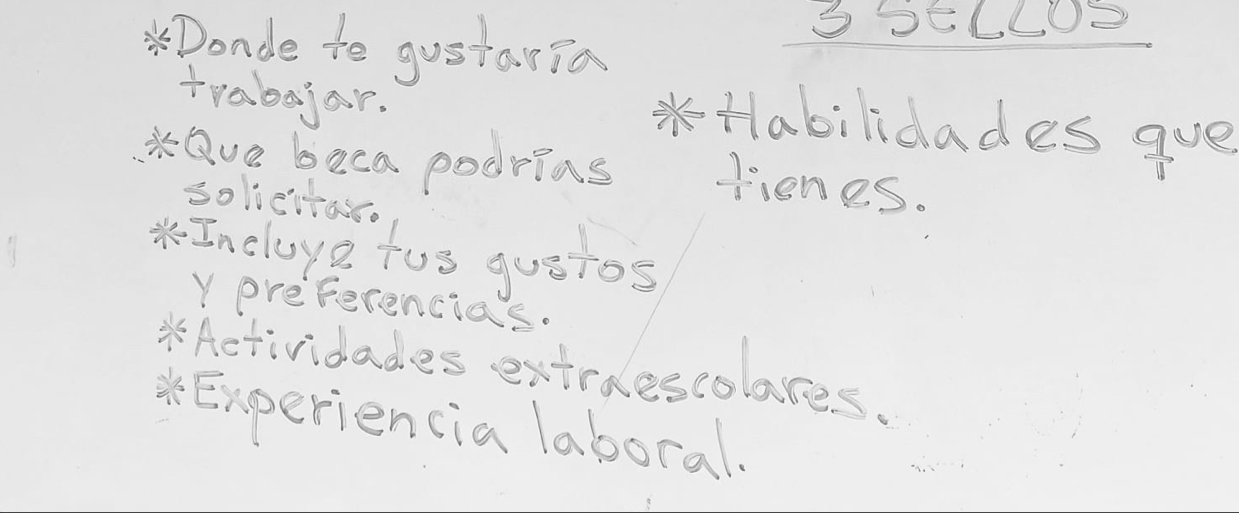 *Donde te gustaría
trabajar.
*Que beca podrías
solicitar.
*Incluye tus gustos
y preferencias.
*Actividades extraescolares.
*Experiencia laboral.
3 SELLOS
*Habilidades que
tienes.